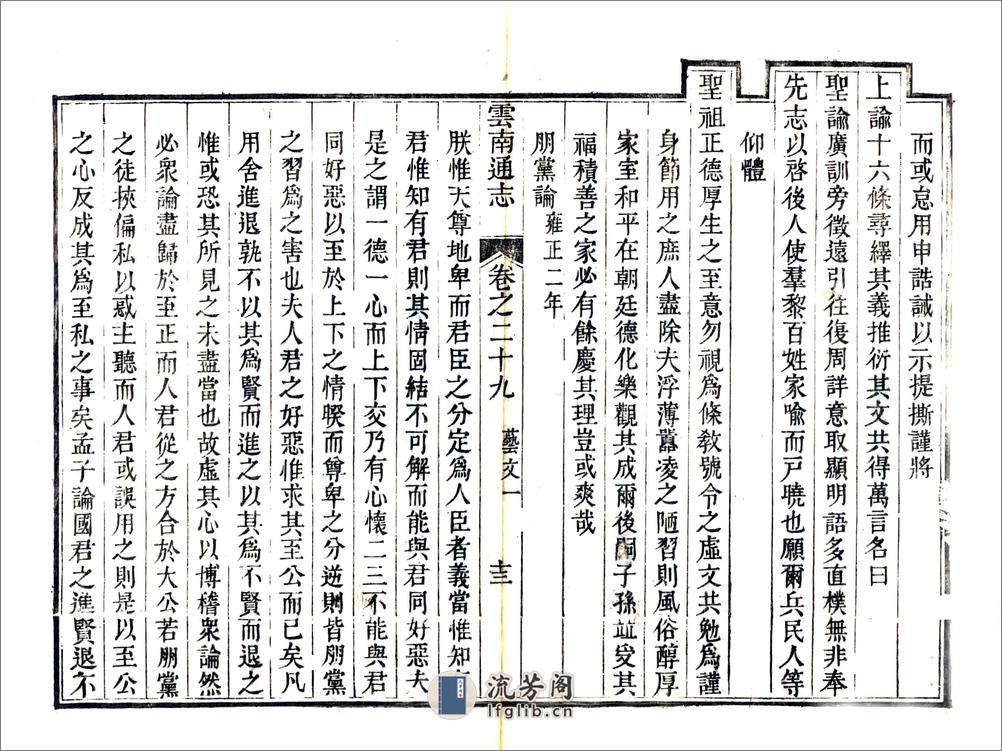 而或怠用申誥誡以示提撕謹將
上諭十六條尋繹其義推衍其文共得萬言名曰
聖諭廣訓旁徵遠引往復周詳意取顯明語多直樸無非奉
先志以啓後人使羣黎百姓家喻而戸曉也願爾兵民人等
仰體
聖祖正德厚生之至意勿視爲條敎號令之虛文共勉爲謹
身節用之庶人盡除夫浮薄囂凌之陋習則風俗醇厚
家室和平在朝廷德化樂觀其成爾後嗣子孫並受其
福積善之家必有餘慶其理豈或爽哉
朋黨論 雍正二年
雲南通志 卷之二十九 藝文一 十三
朕惟天尊地卑而君臣之分定爲人臣者義當惟知
君惟知有君則其情固結不可解而能與君同好惡夫
是之謂一德一心而上下交乃有心懷二三不能與君
同好惡以至於上下之情暌而尊卑之分逆則皆朋黨
之習爲之害也夫人君之好惡惟求其至公而已矣凡
用舍進退孰不以其爲賢而進之以其爲不賢而退之
惟或恐其所見之未盡當也故虛其心以博稽衆論然
必衆論盡歸於至正而人君從之方合於大公若朋黨
之徒挾偏私以惑主聽而人君或誤用之則是以至公
之心反成其爲至私之事矣孟子論國君之進賢退不
流芳阁
lfglib.cn